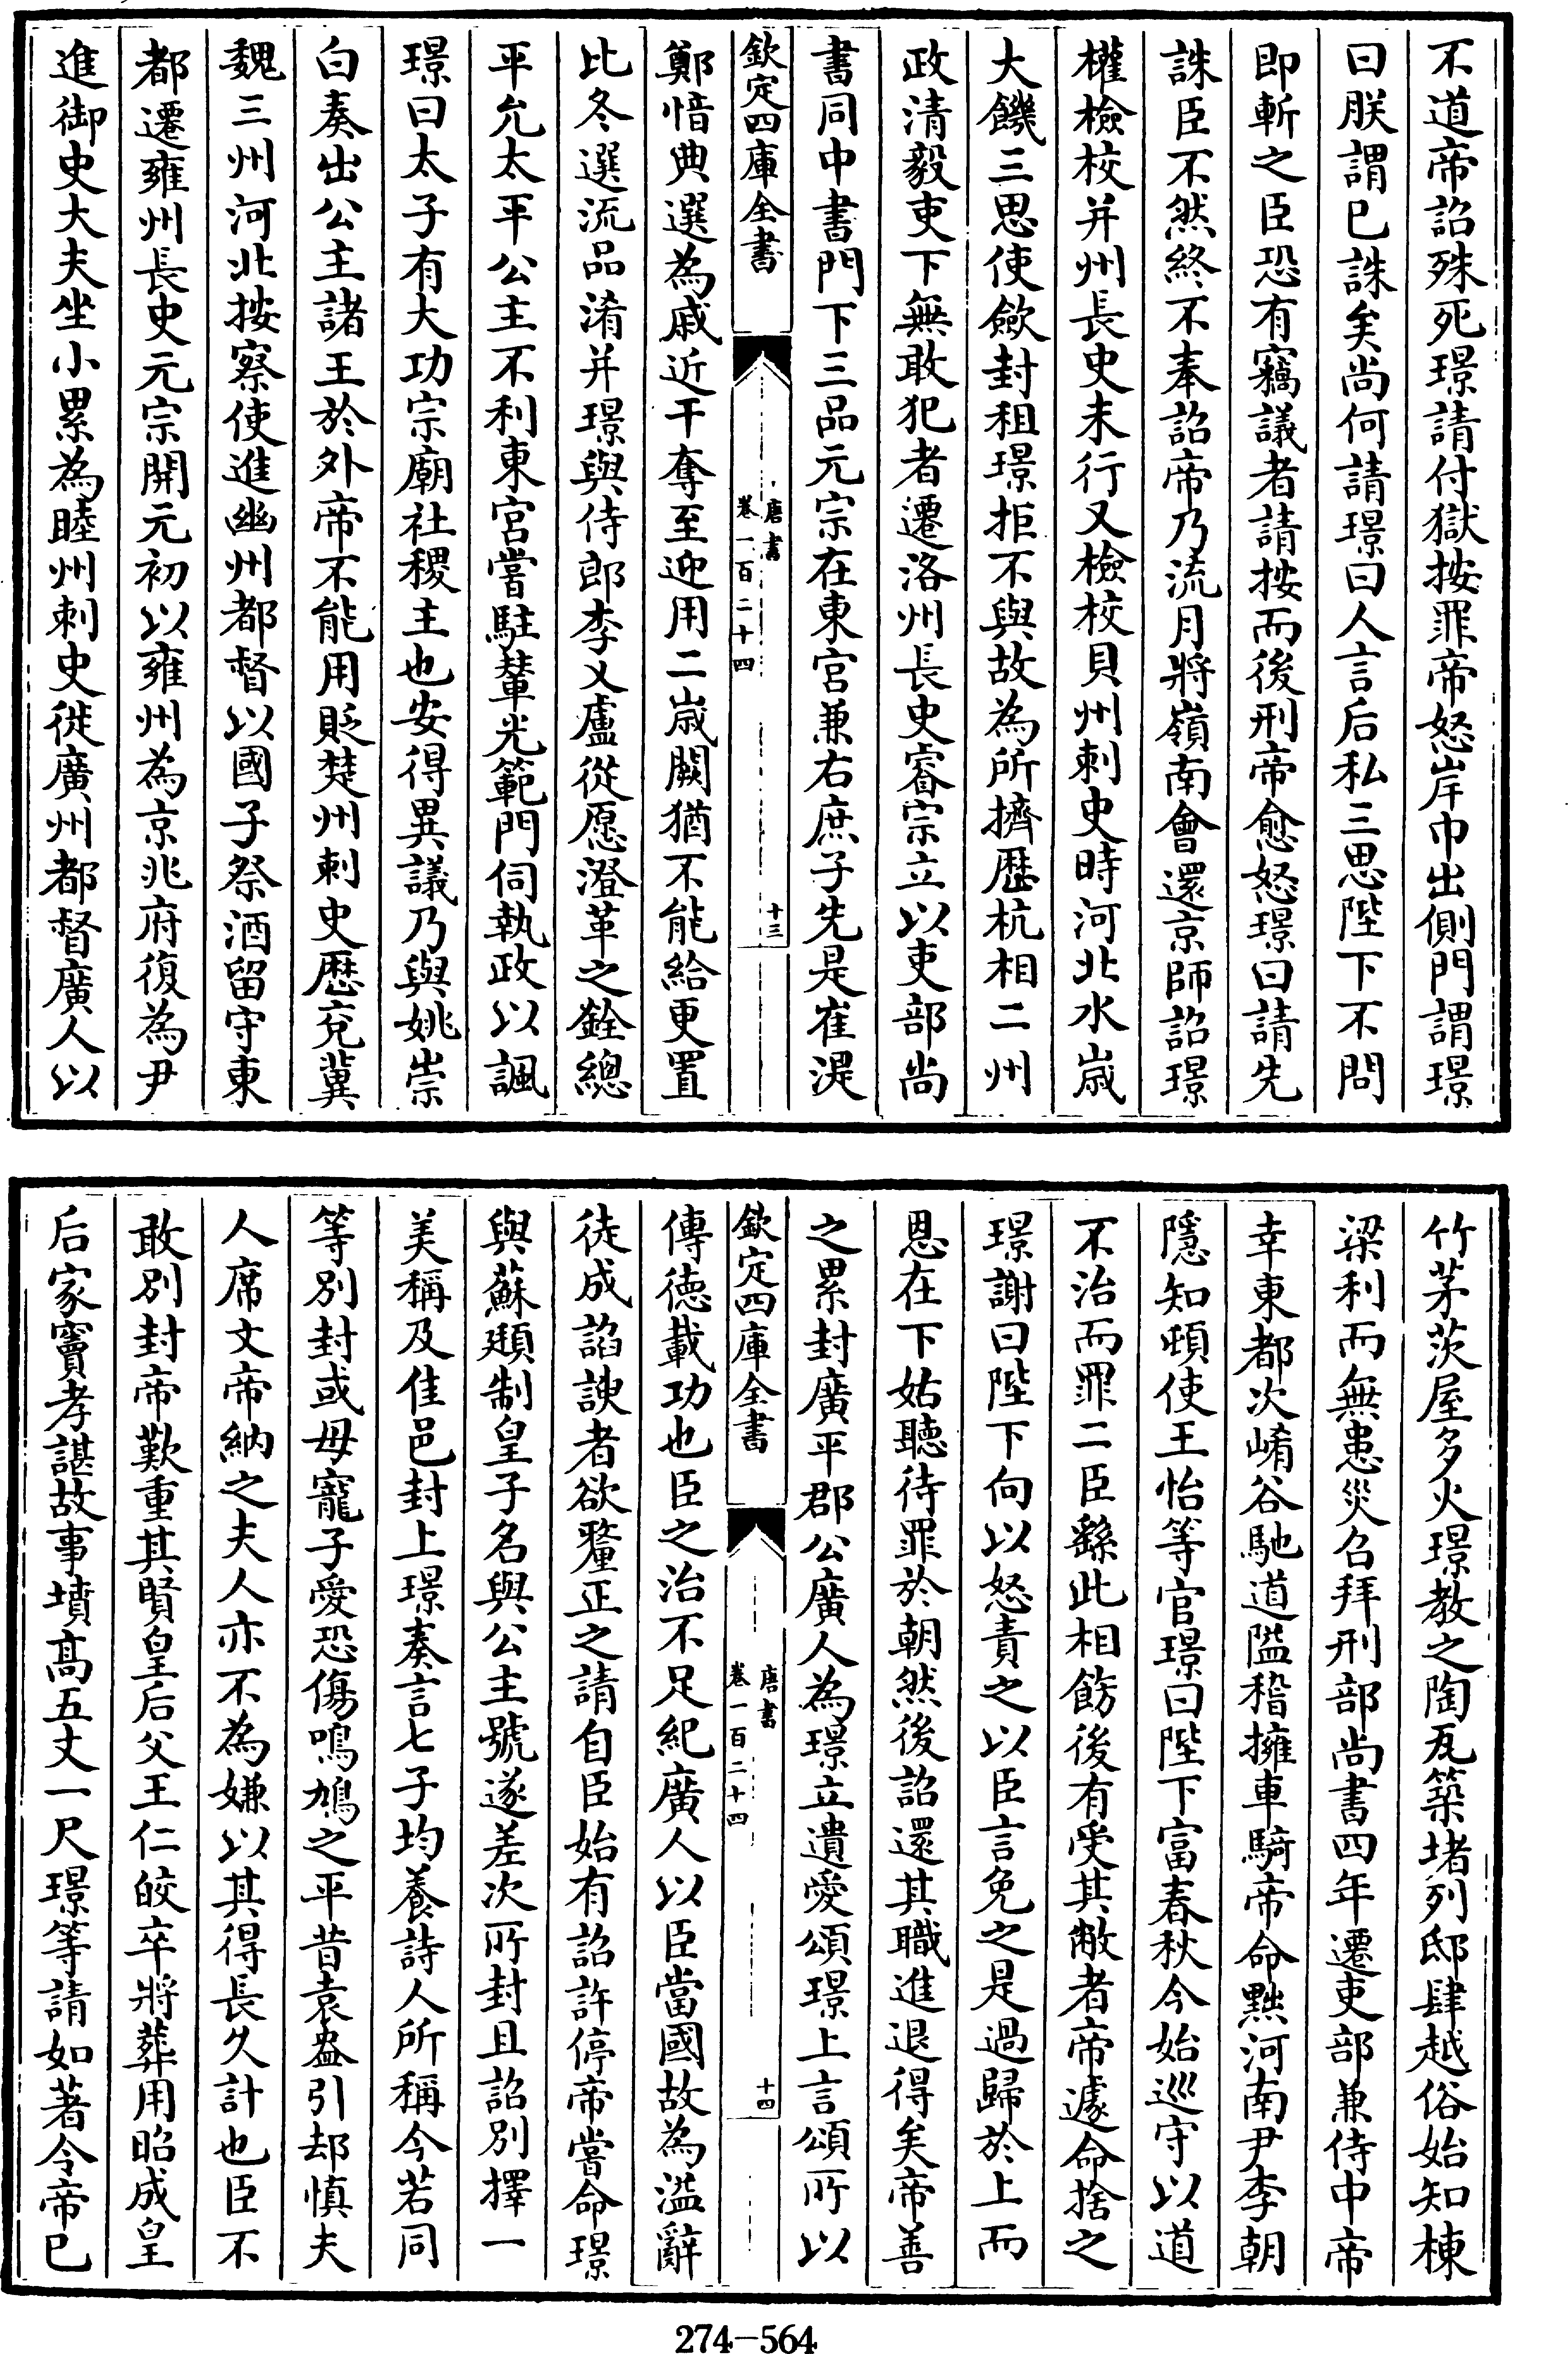 不道帝詔殊死璟請付獄按罪帝怒岸巾出側門謂璟
曰朕謂已誅矣尚何請璟曰人言后私三思陛下不問
即斬之臣恐有竊議者請按而後刑帝愈怒璟曰請先
誅臣不然終不奉詔帝乃流月將嶺南會還京師詔璟
權檢校并州長史未行又檢校貝州刺史時河北水歲
大饑三思使斂封租璟拒不與故為所擠歴杭相二州
政清毅吏下無敢犯者遷洛州長史睿宗立以吏部尚
書同中書門下三品元宗在東宮兼右庶子先是崔湜
欽定四庫全書
唐書
卷一百二十四
十三
鄭愔典選為戚近干奪至迎用二歲闕猶不能給更置
比冬選流品淆并璟與侍郎李乂盧從愿澄革之銓總
平允太平公主不利東宮嘗駐輦光範門伺執政以諷
璟曰太子有大功宗廟社稷主也安得異議乃與姚崇
白奏出公主諸王於外帝不能用貶楚州刺史歴兗冀
魏三州河北按察使進幽州都督以國子祭酒留守東
都遷雍州長史元宗開元初以雍州為京兆府復為尹
進御史大夫坐小累為睦州刺史徙廣州都督廣人以
竹茅茨屋多火璟教之陶瓦築堵列邸肆越俗始知棟
梁利而無患災召拜刑部尚書四年遷吏部兼侍中帝
幸東都次崤谷馳道隘稽擁車騎帝命黜河南尹李朝
隱知頓使王怡等官璟曰陛下富春秋今始巡守以道
不治而罪二臣繇此相飭後有受其敝者帝遽命捨之
璟謝曰陛下向以怒責之以臣言免之是過歸於上而
恩在下姑聽待罪於朝然後詔還其職進退得矣帝善
之累封廣平郡公廣人為璟立遺愛頌璟上言頌所以
欽定四庫全書
唐書
卷一百二十四
十四
傳德載功也臣之治不足紀廣人以臣當國故為溢辭
徒成諂諛者欲釐正之請自臣始有詔許停帝嘗命璟
與蘇頲制皇子名與公主號遂差次所封且詔別擇一
美稱及佳邑封上璟奏言七子均養詩人所稱今若同
等別封或母寵子愛恐傷鳴鳩之平昔袁盎引却慎夫
人席文帝納之夫人亦不為嫌以其得長久計也臣不
敢別封帝歎重其賢皇后父王仁皎卒將葬用昭成皇
后家竇孝諶故事墳高五丈一尺璟等請如著令帝已
274-564